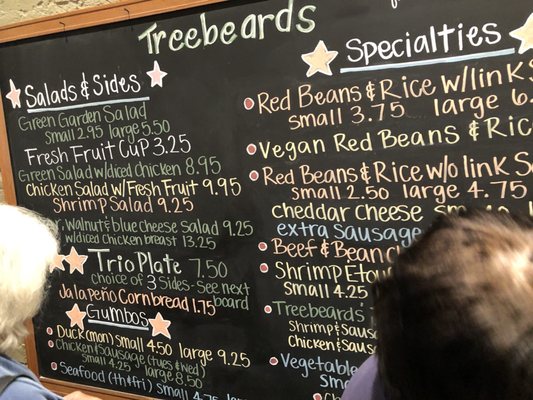 Treebeards
Salads & Sides
Green Garden Salad
small 2.95 large 5.50
Fresh Fruit Cup 3.25
Green Salad w/diced chicken 8.95
Chicken Salad w/Fresh Fruit 9.95
Shrimp Salad 9.25
Walnut & blue Cheese Salad 9.25
w/diced Chicken breast 13.25
Trio Plate 7.50
choice of 3 Sides - See next
board
Jalapeño Cornbread 1.75
Gumbos
Duck (mon) Small 4.50 large 9.25
Chicken & Sausage (tues & wed)
Small 4.25 large 8.50
Seafood (th & fri) Small 4.75
Specialties
Red Beans & Rice w/link
small 3.75 large
Vegan Red Beans &
Red Beans & Rice w/o link
small 2.50 large 4.75
cheddar cheese
extra Sausage
Beef & Bean
Shrimp
Small 4.25
Treebeards
Shrimp &
Chicken &
Vegetable